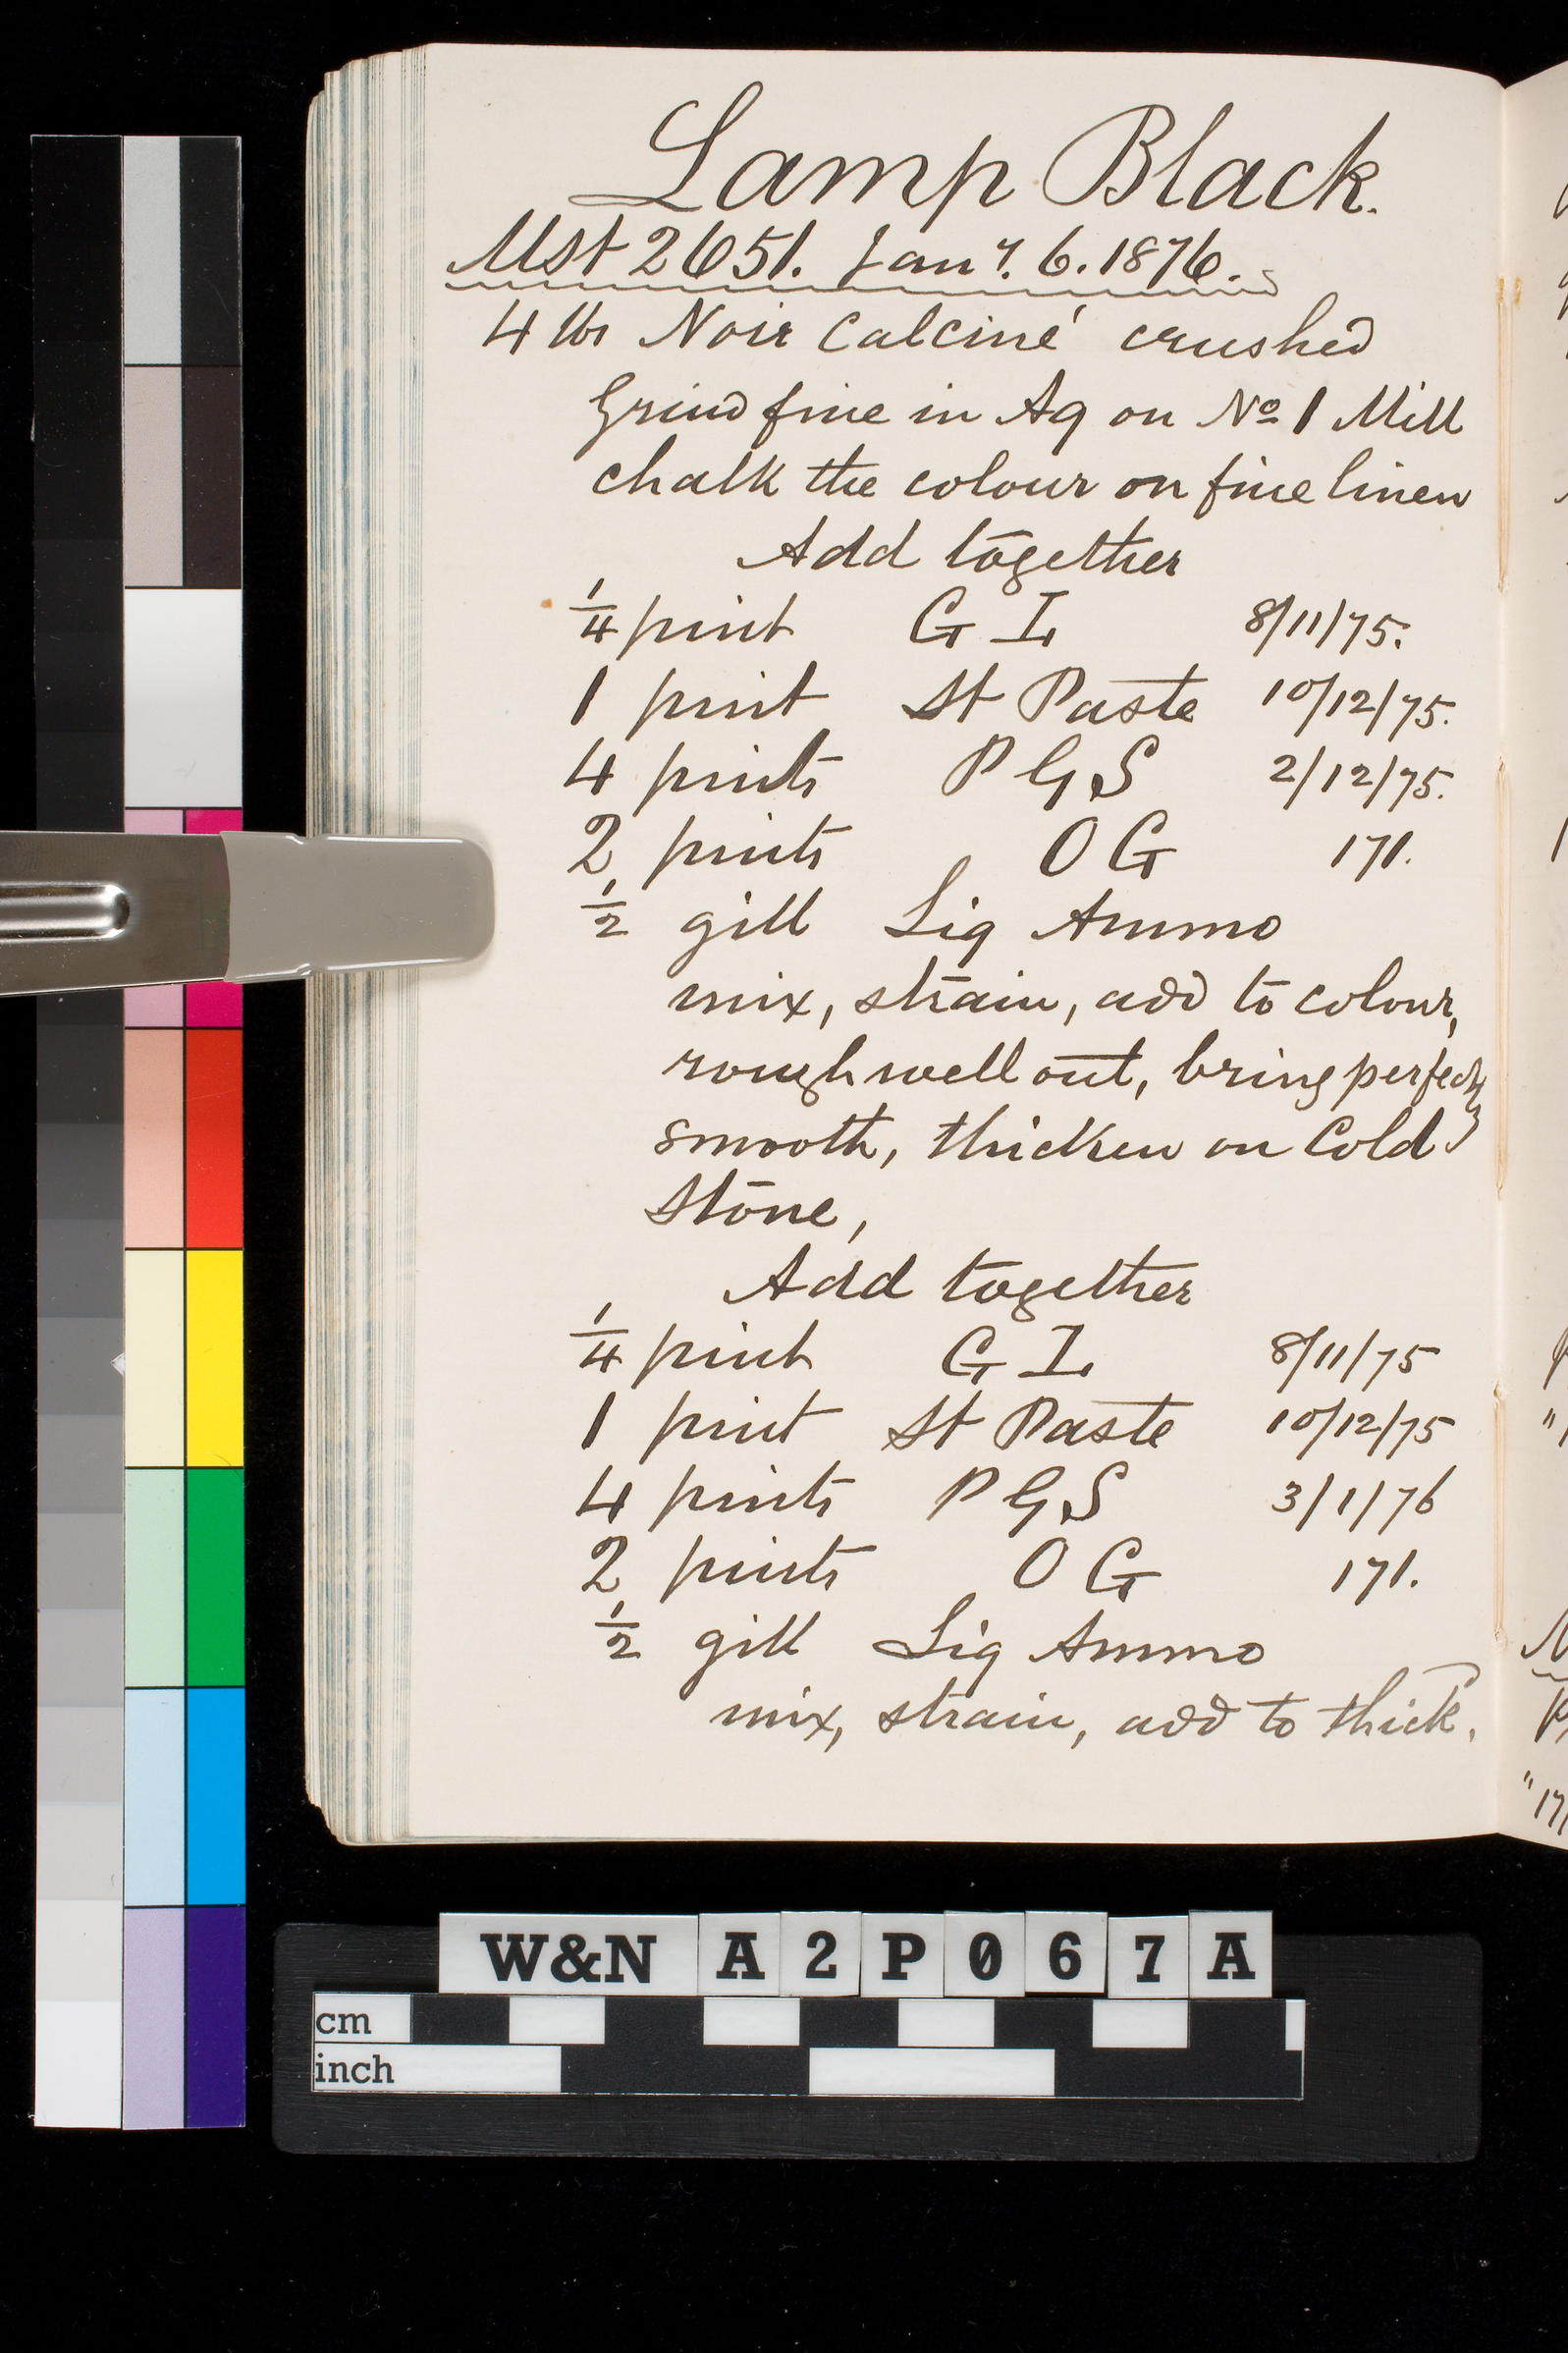 Lamp Black.
Mst 2651. Jany. 6. 1876.
4 lbs Noir Calciné crushed
Grind fine in Aq on No 1 Mill
chalk the colour on fine linen
Add together
1/4 pint G I 8/11/75.
1 pint St Paste 10/12/75.
4 pints P G S 2/12/75.
2 pints O G 171.
1/2 gill Liq Ammo
mix, strain, add to colour,
rough well out, bring perfectly
smooth, thicken on Cold
Stone,
Add together
1/4 pint G I 8/11/75
1 pint St Paste 10/12/75
4 pints P G S 3/1/76
2 pints O G 171.
1/2 gill Liq Ammo
mix, strain, add to thick.
W&N A2P067A
cm
inch